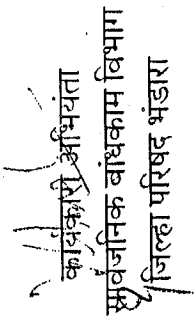 कार्यकारी अभियंता
सार्वजनिक बांधकाम विभाग
जिल्हा परिषद भंडारा